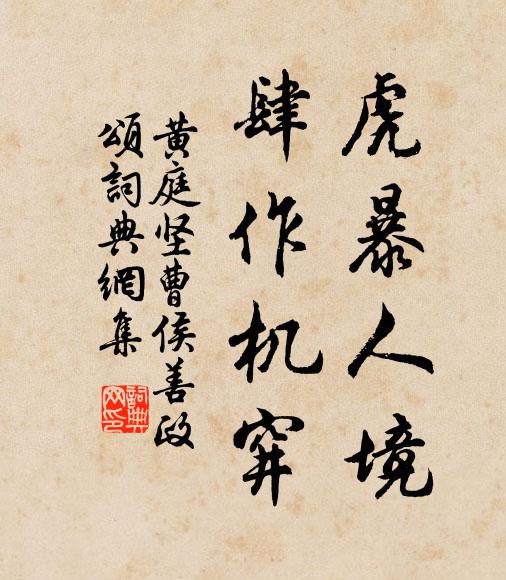 虎暴人境
肆作机穽
黄庭坚曹侯善政
頌詞典網集
詞典
网印